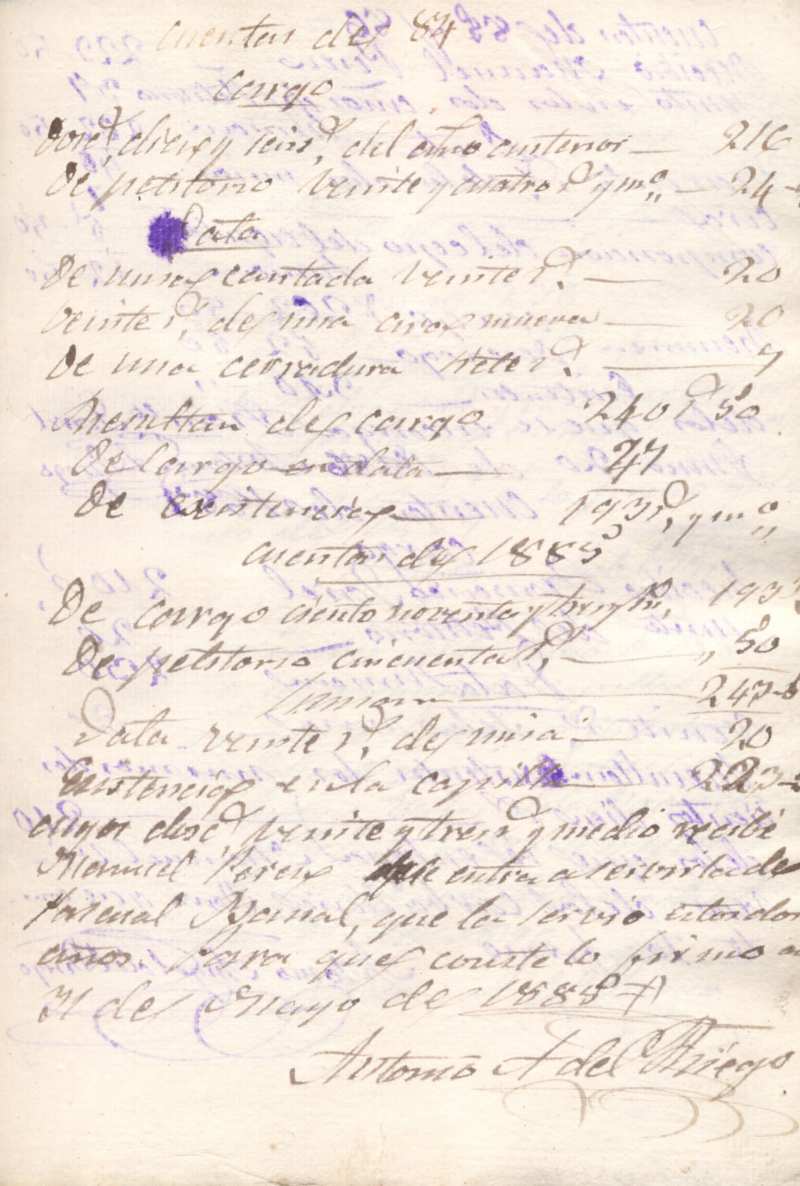 cuentas de 84
Cargo
Dosc.s diez y seis r.s del año anterior — 216
De petitorio veinte y cuatro r.s y m.o — 24
Data
De una cantada veinte r.s — 20
veinte r.s de una cruz nueva — 20
De una cerradura siete r.s — 7
Resultan de cargo 240 r.s 50
De Cargo en data — 47
De existencia — 193 r.s y m.o
cuentas de 1885
De cargo ciento noventa y tres y m.o 193
De petitorio cincuenta r.s — 50
Suman — 243
Data veinte r.s de misa — 20
Existencia en la capilla — 223
cuyos dosc.s veinte y tres r.s y medio recibe
Manuel Perez que entra a servirla de
Pascual Bernal, que la sirvió estos dos
años. Para que conste lo firmo a
31 de Mayo de 1885
Antonio A del Riego